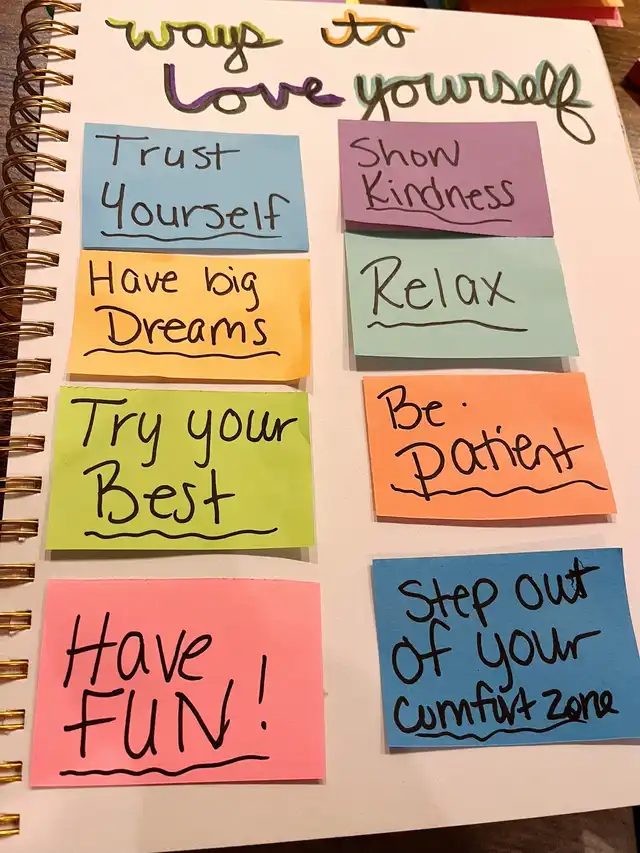 ways to
love yourself
Trust
Yourself
Show
Kindness
Have big
Dreams
Relax
Try your
Best
Be
patient
Have
FUN!
Step out
of your
comfort zone